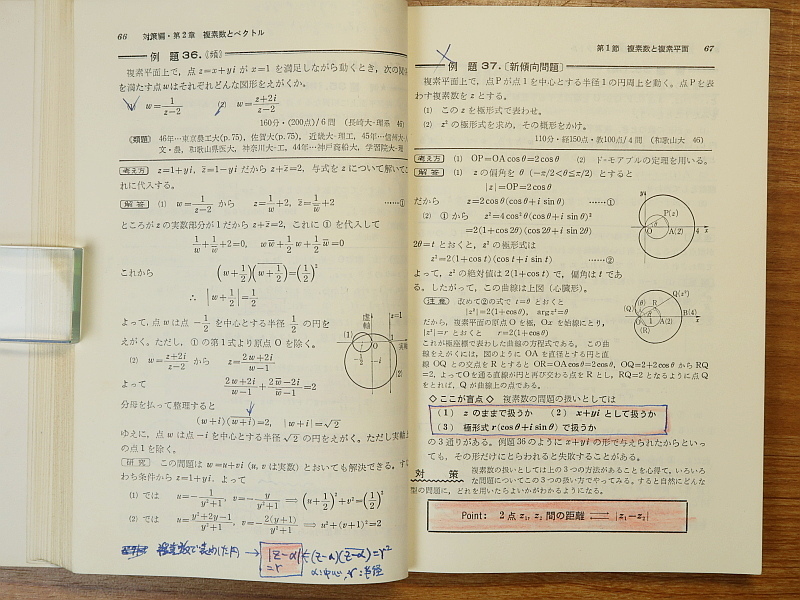 66 対策編・第2章 複素数とベクトル
例 題 36.《頻》
複素平面上で, 点 z=x+yi が x=1 を満足しながら動くとき, 次の関
を満たす点wはそれぞれどんな図形をえがくか。
(1) w=1/(z−2) (2) w=(z+2i)/(z−2)
160分・(200点)/6問 (長崎大-理系 46)
《類題》 46年…東京農工大(p.75), 佐賀大(p.75), 近畿大-理工, 45年…信州大
文・農, 和歌山県医大, 神奈川大-工, 44年…神戸商船大, 学習院大-理
考え方 z=1+yi, z̄=1−yi だから z+z̄=2, 与式を z について解いて
れに代入する。
解答 (1) w=1/(z−2) から z=1/w+2, z̄=1/w̄+2 ……①
ところが z の実数部分が1だから z+z̄=2, これに ① を代入して
1/w+1/w̄+2=0, ww̄+1/2w+1/2w̄=0
これから (w+1/2)(w̄+1/2)=(1/2)²
∴ |w+1/2|=1/2
よって, 点 w は点 −1/2 を中心とする半径 1/2 の円を
えがく。ただし, ① の第1式より原点 O を除く。
(2) w=(z+2i)/(z−2) から z=(2w+2i)/(w−1)
よって (2w+2i)/(w−1)+(2w̄−2i)/(w̄−1)=2
分母を払って整理すると
(w+i)(w̄+i)=2, |w+i|=√2
ゆえに, 点 w は点−i を中心とする半径√2 の円をえがく。ただし実軸
の点1を除く。
研究 この問題は w=u+vi (u, v は実数) とおいても解決できる。す
わち条件から z=1+yi, よって
(1) では u=−1/(y²+1), v=−y/(y²+1) ⟹ (u+1/2)²+v²=(1/2)²
(2) では u=(y²+2y−1)/(y²+1), v=−2(y+1)/(y²+1) ⟹ u²+(v+1)²=2
複素数で表わした円 → |z−α|=r
(z−α)(z̄−ᾱ)=r²
α:中心, r:半径
虚軸
(1)
O
−1/2
−i
第1節 複素数と複素平面 67
例 題 37.〔新傾向問題〕
複素平面上で, 点Pが点1を中心とする半径1の円周上を動く。点Pを表
わす複素数を z とする。
(1) この z を極形式で表わせ。
(2) z² の極形式を求め, その概形をかけ。
110分・経150点・教100点/4問 (和歌山大 46)
考え方 (1) OP=OA cos θ=2 cos θ (2) ド・モアブルの定理を用いる。
解答 (1) z の偏角を θ (−π/2<θ≦π/2) とすると
|z|=OP=2 cos θ
だから z=2 cos θ(cos θ+i sin θ) ……①
(2) ① から z²=4 cos² θ(cos θ+i sin θ)²
=2(1+cos 2θ)(cos 2θ+i sin 2θ)
2θ=t とおくと, z² の極形式は
z²=2(1+cos t)(cos t+i sin t) ……②
よって, z² の絶対値は 2(1+cos t) で, 偏角は t であ
る。したがって, この曲線は上図 (心臓形)。
注意 改めて②の式で t=θ とおくと
|z²|=2(1+cos θ), arg z²=θ
だから, 複素平面の原点 O を極, Ox を始線にとり,
|z²|=r とおくと r=2(1+cos θ)
これが極座標で表わした曲線の方程式である。この曲
線をえがくには, 図のように OA を直径とする円と直
線 OQ との交点を R とすると OR=OA cos θ=2 cos θ, OQ=2+2 cos θ から RQ
=2, よってOを通る直線が円と再び交わる点を R とし, RQ=2 となるように点 Q
をとれば, Q が曲線上の点である。
yi
P(z)
O
A(2)
4 x
Q(z²)
R
B(4)
x
A(2)
(R)
◇ ここが盲点 ◇ 複素数の問題の扱いとしては
(1) z のままで扱うか (2) x+yi として扱うか
(3) 極形式 r(cos θ+i sin θ) で扱うか
の3通りがある。例題36のように x+yi の形で与えられたからといっ
ても, その形だけにとらわれると失敗することがある。
対 策 複素数の扱いとしては上の3つの方法があることを心得て, いろいろ
な問題についてこの3つの扱い方でやってみる。すると自然にどんな
型の問題に, どれを用いたらよいかがわかるようになる。
Point: 2点 z₁, z₂ 間の距離 ⇄ |z₁−z₂|